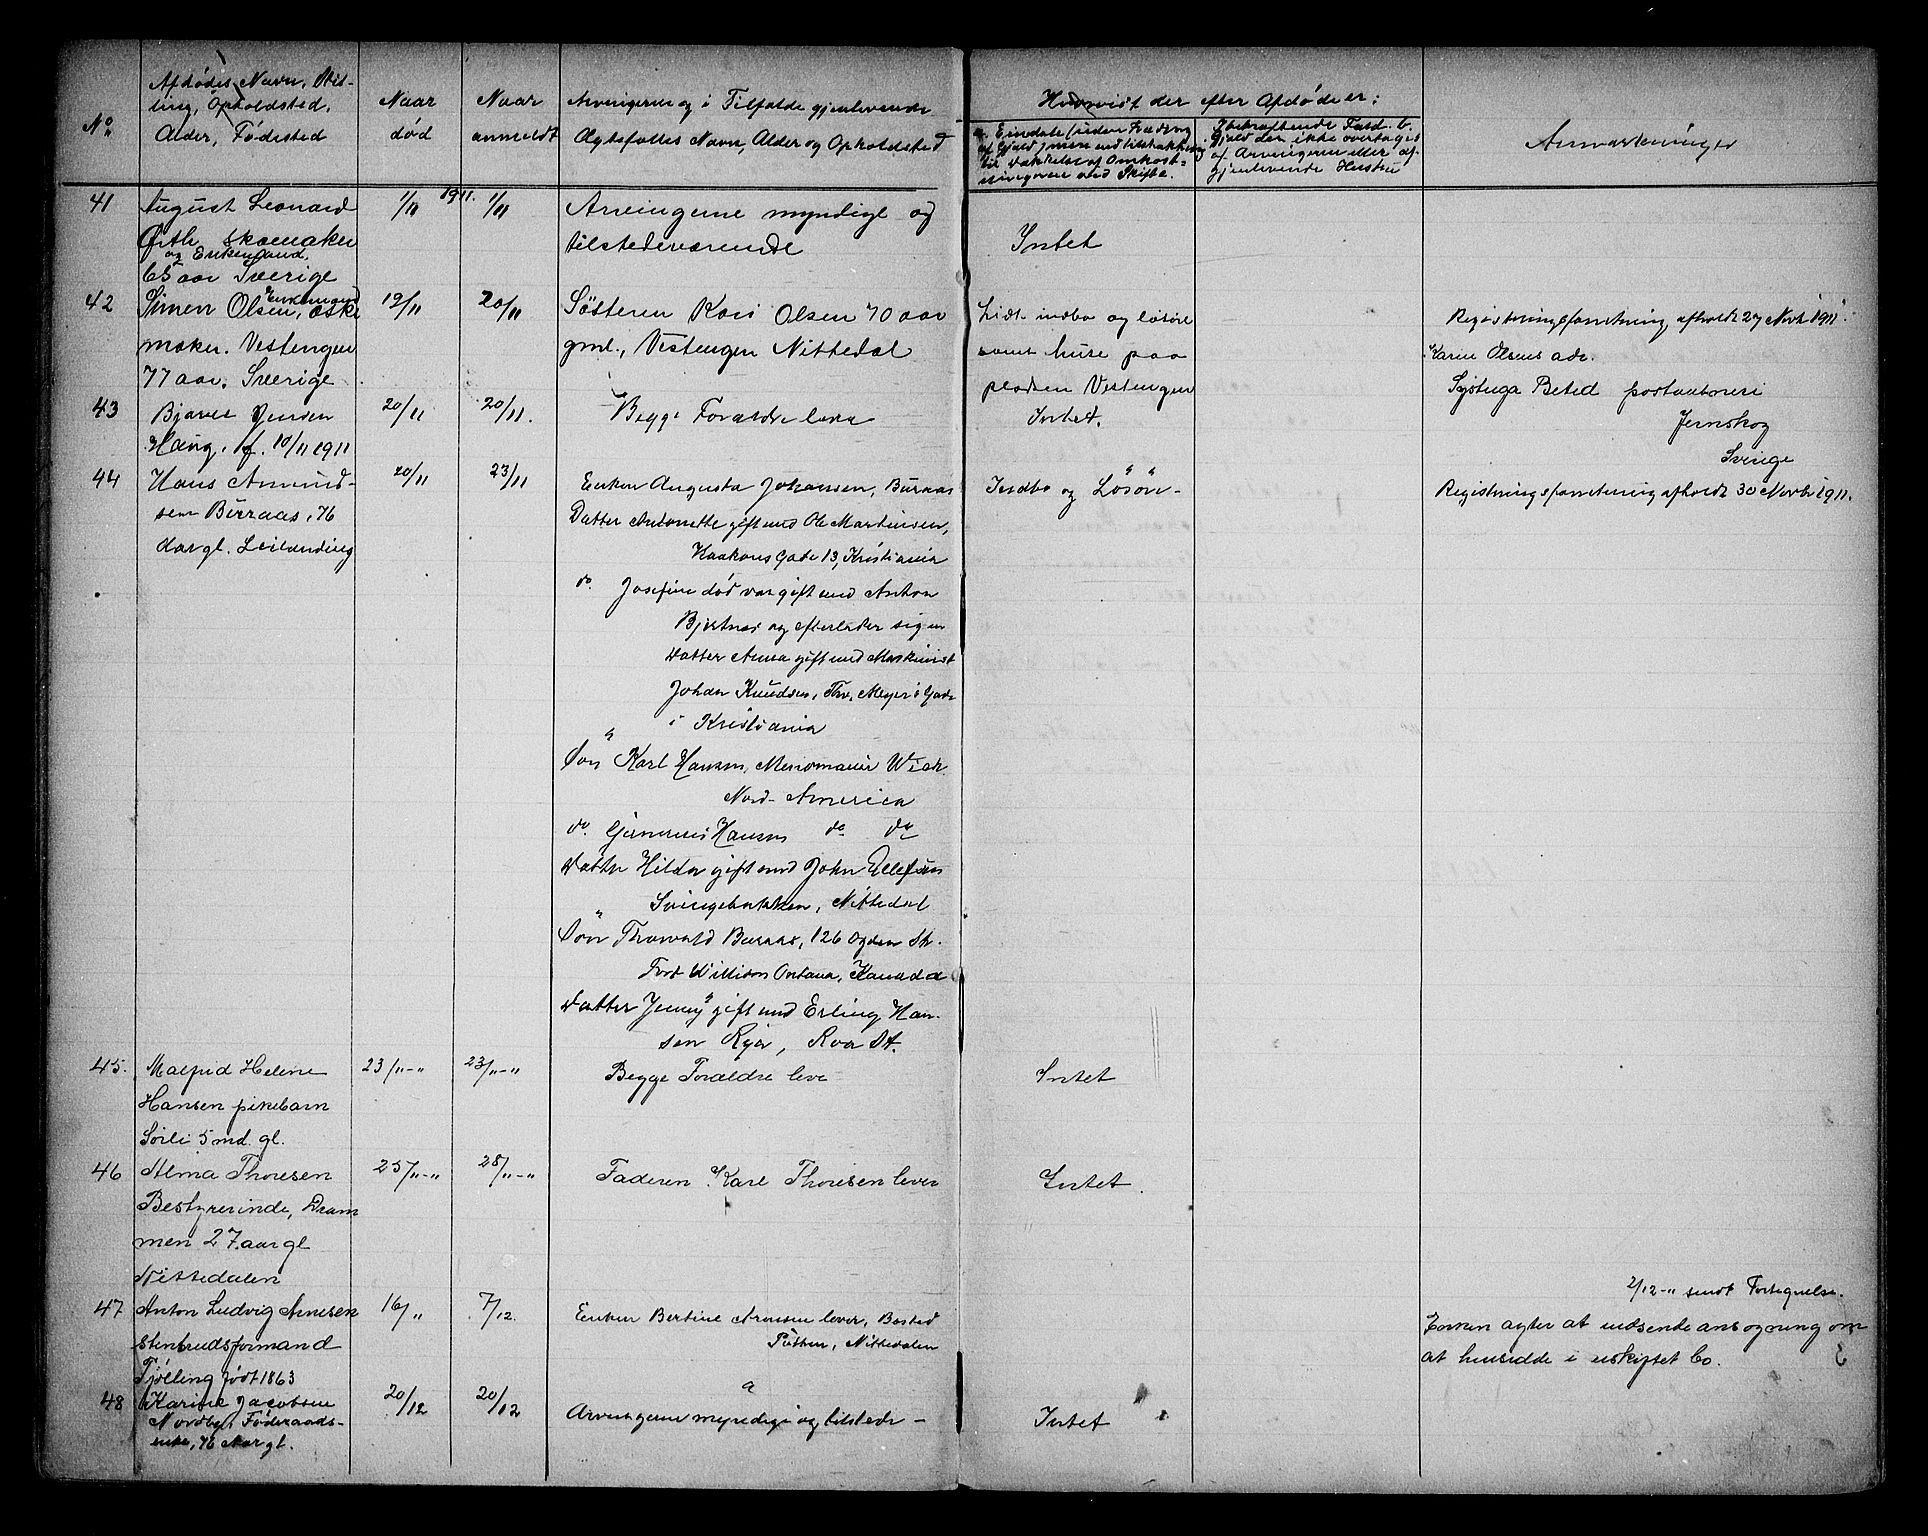 No
Afdødes Navn, Stil-
ling, Opholdsted,
Alder, Fødested
Naar
død
Naar
anmeldt
Arvingerne og i Tilfælde gjenlevende
Ægtefælles Navn, Alder og Opholdsted
Hvorvidt der efter Afdøde er:
a. Eiendele (uden Fradrag
af Gjæld) mere end tilstrækkelig
til Dækkelse af Omkost-
ningerne ved Skifte.
b.
Gjæld der ikke overtages
af Arvingerne eller af
gjenlevende
Anmærkninger
1911.
41
August Leonard
Örth skomaker
og Enkemand,
65 aar Sverige
1/11
1/11
Arvingerne myndige og
tilstedeværende
Intet
42
Simen Olsen, Enkemand
maker. Vestengen
77 aar. Sverige
19/11
20/11
Søsteren Kari Olsen 70 aar
gml., Vestengen Nittedal
Lidt indbo og løsøre
samt huse paa
pladsen Vestengen
Registreringsforretning afholdt 27 Novbr 1911.
Karin Olsens adr.
Systuga Beted
Jernskog
Sverige
43
Bjarne Jensen
Haug, f. 10/11 1911
20/11
20/11.
Begge Forældre leve
Intet.
44
Hans Amund-
sen Buraas, 76
Aar gl. Leilænding
20/11
23/11
Enken Augusta Johansen, Buraas
Datter Antonette gift med Ole Martinsen,
Haakons Gade 13, Kristiania
do. Josefine død var gift med Anton
Bjertnes og efterlader sig en
Datter Anna gift med Maskinist
Johan Knudsen, Thv. Meyers Gade
i Kristiania
Søn Karl Hansen, Menomonie Wis.
Nord-America
do. Hansen do do
Datter Hilda gift med John Ellefsen
Svingebakken, Nittedal
Søn Thorvald Buraas, 126 Ogden St.
Fort William Ontario, Kanada
Datter Jenny gift med Erling Han-
sen Ryer, Roa St.
Indbo og Løsøre-
Registreringsforretning afholdt 30 Novbr 1911.
45.
Helene
Hansen pikebarn
Sørli 5 md. gl.
23/11-"
23/11-"
Begge Forældre leve
Intet
46
Alma Thoresen
Bestyrerinde, Dram
men 27 aar gl
Nittedalen
25/11-"
28/11-"
Faderen Karl Thoresen lever
Intet.
47
Anton Ludvig Arnesen
Stenbrudsformand
Tjølling født 1863
16/11
7/12.
Enken Bertine Arnesen lever, Bosted
Putten, Nittedalen
2/12-" sendt Fortegnelse.
Enken agter at indsende ansøgning om
at hensidde i uskiftet bo.
48
Karine Jacobsen
Nordby, Føderaads-
enke, 76 Aar gl.
20/12
20/12
Arvingerne myndige og tilstede-
Intet